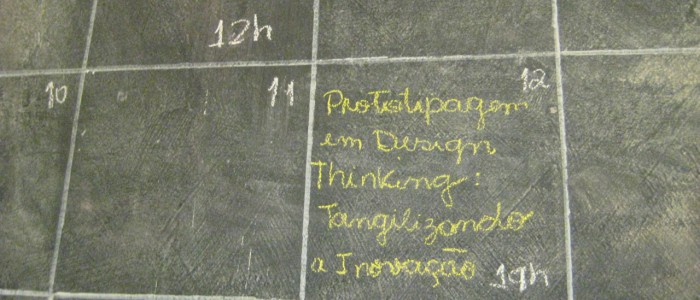 12h
10
11
12
Prototipagem
em Design
Thinking:
Tangilizando
a Inovação 19h